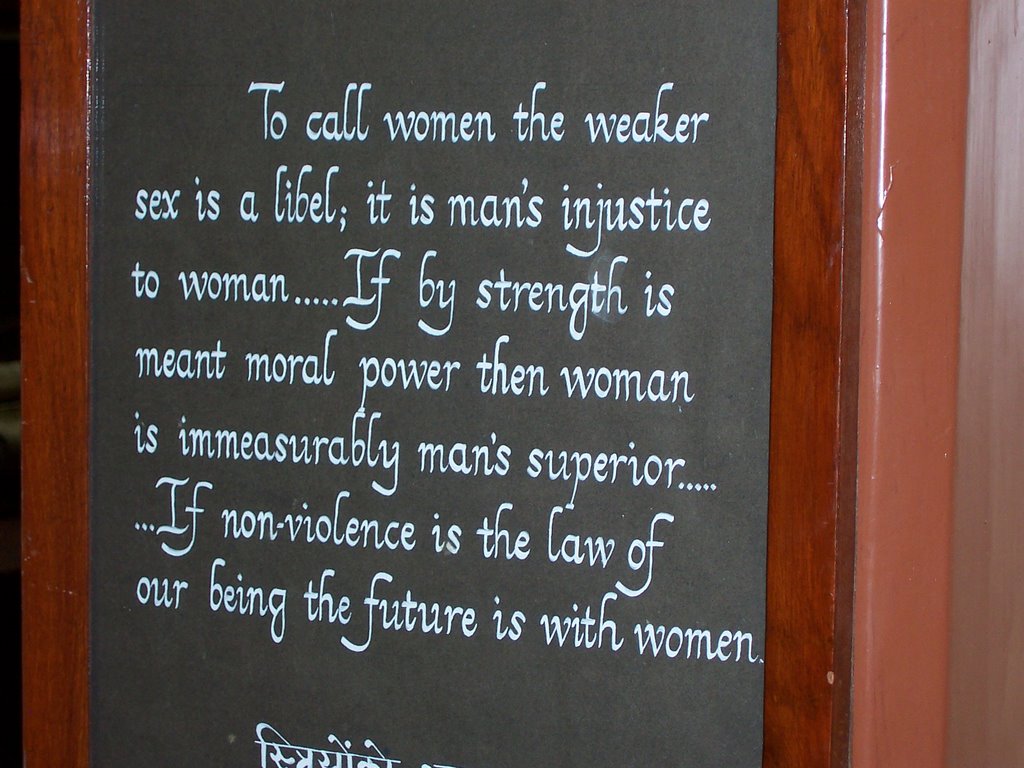 To call women the weaker
sex is a libel; it is man's injustice
to woman.....If by strength is
meant moral power then woman
is immeasurably man's superior.....
...If non-violence is the law of
our being the future is with women.
स्त्रियोंको